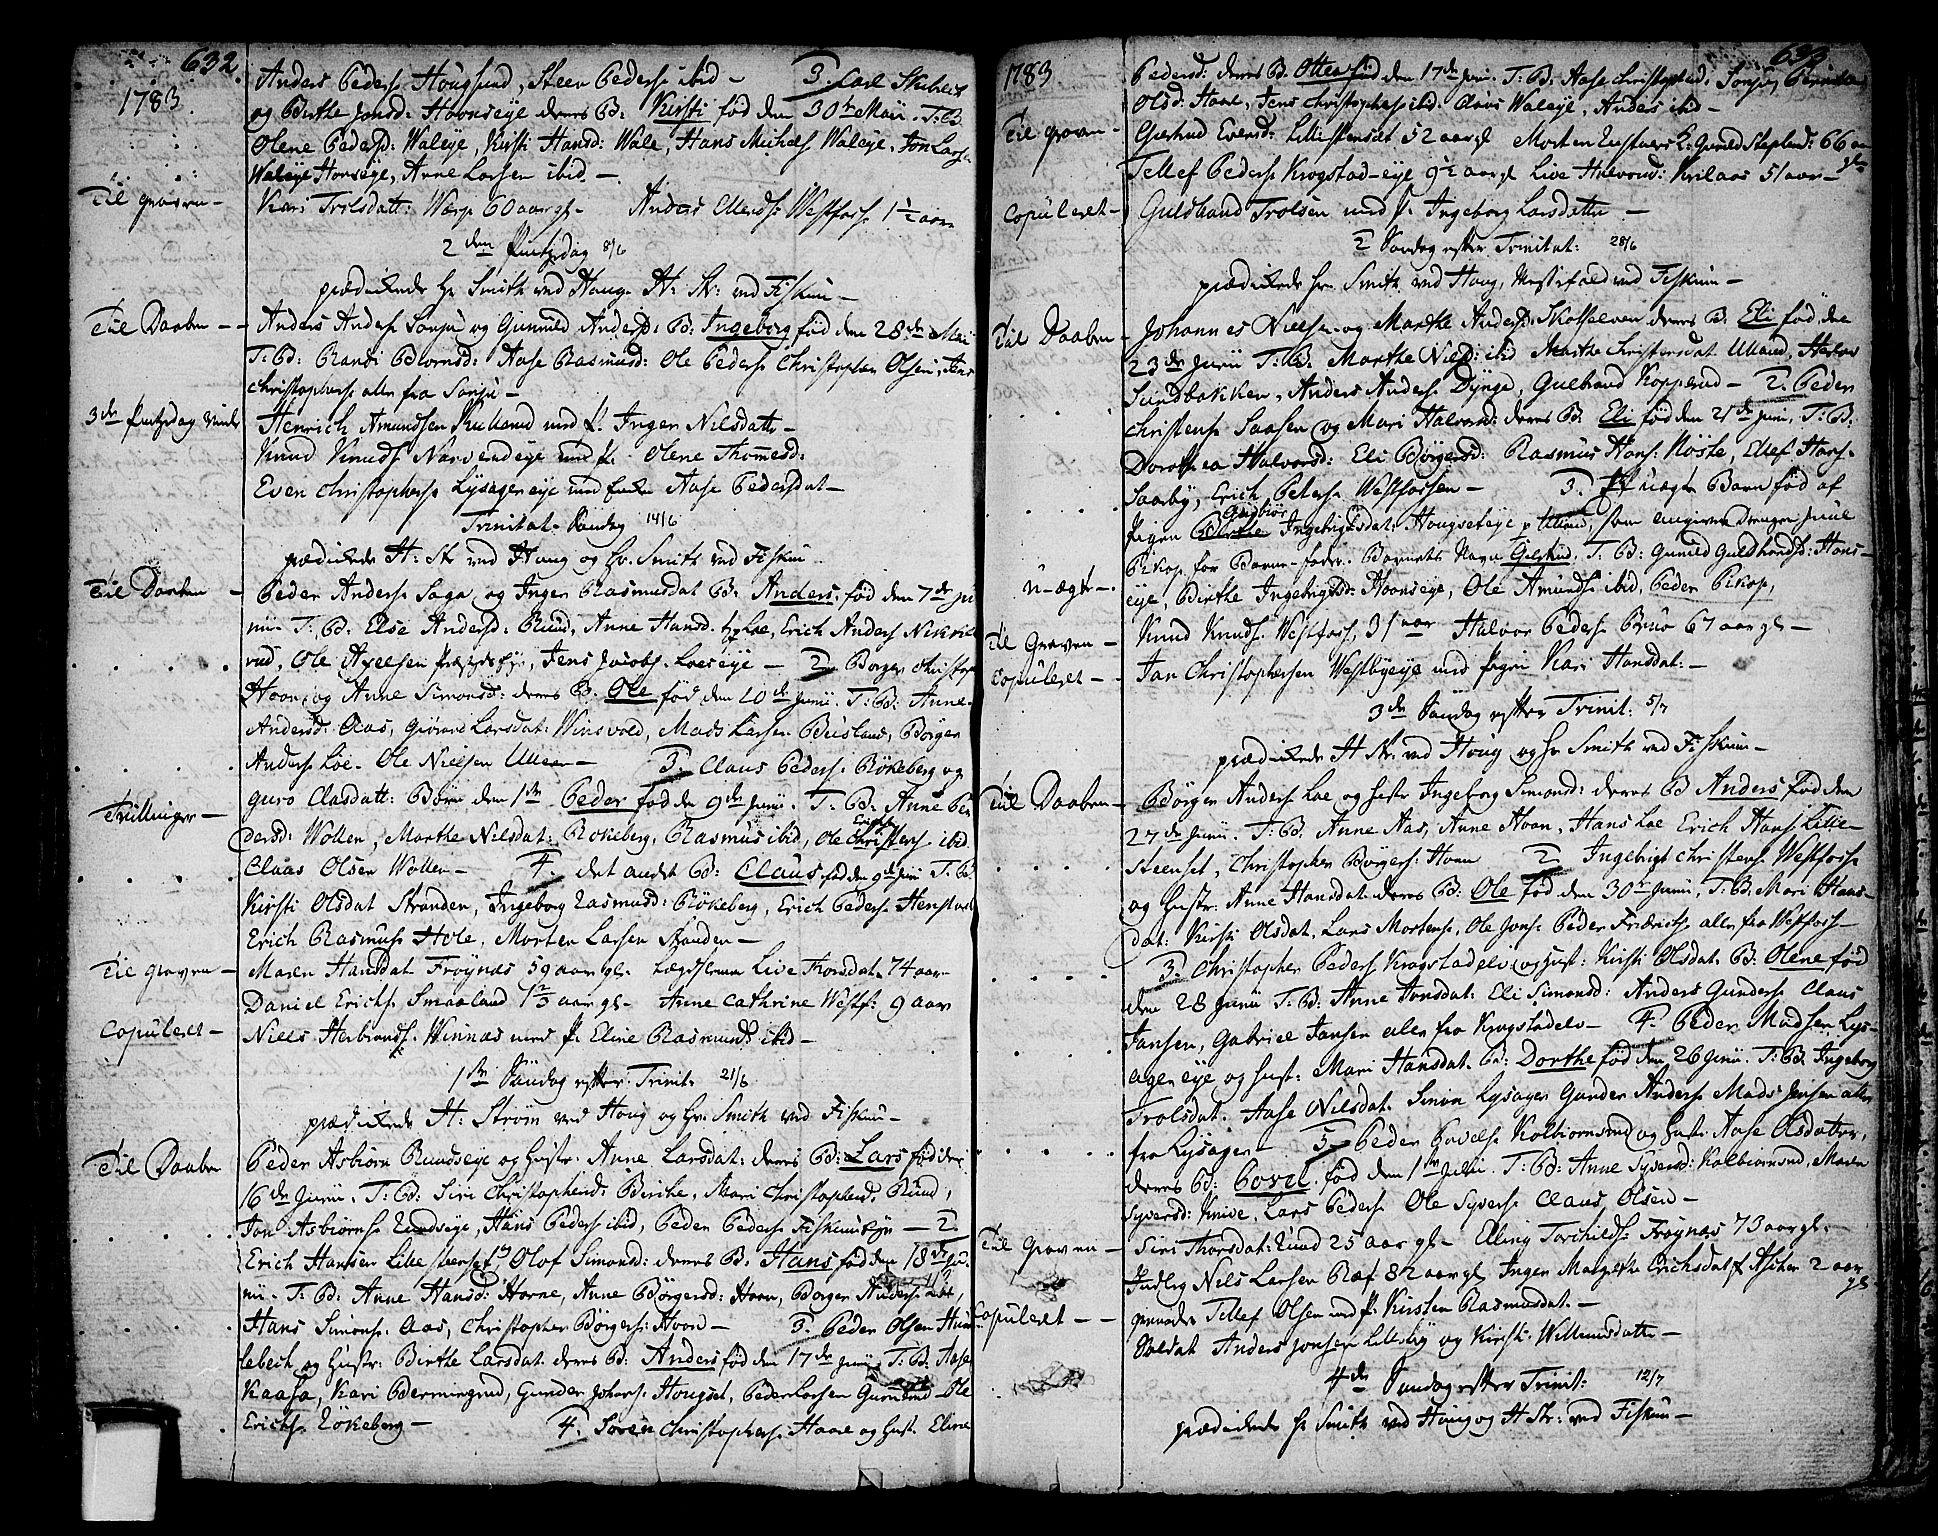 632.
1783.
Anders Peders: Hougsund, Steen Peders: ibid - 3. Carl
og Birthe Jonsd: Hoonseye deres B: Kirsti fød den 30te Maii. T: B:
Olene Pedersd: Waleye, Kirsti Hansd: Wale, Hans Michels: Waleye, Jon Larsen
Waleye Honseye, Anne Larsen ibid. -
Til graven - Kari Trolsdatt: Warp 60 aar gl - Anders Westfoss: 1 1/2 aar
2den Pintzdag 8/6
prædikede Hr Smith ved Houg. H: Str: ved Fiskum -
Til Daaben - Anders Anders: Sonju og Gunnild Andersd: B: Ingeborg fød den 28de Maii
T: B: Randi Biornsd: Aase Rasmusd: Ole Peders: Christopher Olsen, Jens
Christophers: alle fra Sonju -
3de Pintzdag viede Henrich Amundsen med P. Inger Nilsdatt: -
Knud Knuds: Narvendeye med P. Olene Thomesd:
Even Christophers: Lysagereye med Enke Aase Pedersdat -
Trinitat: Søndag 14/6
prædikede H: Str ved Houg og Hr. Smith ved Fiskum
Til Daaben - Peder Anders: Saga og Inger Rasmusdat B: Anders. fød den 7de Ju-
nii T: B: Else Andersd: Ruud, Anne Hansd. Loe, Erich Anders:
rud, Ole Axelsen Jens Jacobs: Loeseye - 2. Børger Christoph:
Hoon og Anne Simonsd: deres B: Ole fød den 10de Junii. T: B: Anne
Andersd: Aas, Giøran Larsdat: Winsvold, Mads Larsen Buslaus, Børger
Anders: Loe. Ole Nielsen Ulleren - 3. Claus Peders: Røkeberg og
Trillinger - Guro Clasdatt: Børn den 1te Peder fød den 9de Junii. T: B: Anne Pe-
dersd: Wollen, Marthe Nilsdat: Rokeberg, Rasmus ibid, Ole Christens: ibid
Claas Olsen Wollen - 4. det andet B: Claus fød den 9de Juni T: B:
Kirsti Olsdat Stranden, Ingeborg Rasmusd: Røkeberg, Erich Peders:
Erich Rasmus: Hole, Morten Larsen Stranden -
Til graven - Maren Hansdat Frøynæs 59 aar gl. Lægdslem Live Thorsdat. 74 aar
Daniel Erichs: Smaaland 1 2/3 aar gl - Anne Cathrine Westf: 9 aar
Copuleret - Niels Herbrands: Winnæs med P. Eline Rasmusd: ibid -
1te Søndag efter Trinit: 21/6
prædikede H: Strøm ved Houg og Hr: Smith ved Fiskum -
Til Daaben Peder Asbiørn Ruudseye og Hustr: Anne Larsdat: deres B: Lars fød den
16de Junii. T: B: Siri Christophersd: Birthe, Mari Christophersd. Ruud,
Jon Asbiørns: Ruudseye, Hans Peders: ibid, Peder Peders: Fiskum - 2.
Erich Hansen Lillesteenset og Olof Simonsd: deres B: Hans fød den 18de Ju-
nii. T: B: Anne Hansd: Horne, Anne Børgersd: Hoen, Børger Anders: Loe,
Hans Simons: Aas, Christopher Børgers: Hoon - 3. Peder Olsen Hum-
lebech og Hustr: Birthe Larsdat. deres B: Anders fød den 17de Junii T: B: Aase
Kaasa, Kari Bermingrud, Gunder Johans: Hougset, Peder Larsen Gunnerud Ole
Erichs: Røkeberg - 4. Søren Christophers: Haare og Hust: Eline
633
1783
Pedersd: deres B: Ottea fød den 17de Juni. T: B: Aase Christophersd: Sonju,
Olsd: Haare, Jens Christophers: ibid. Claus Waleye, Anders ibid -
Til graven - Giertrud Evensd: Lillesteenset 52 aar gl Morten K: Gunild Stephensd: 66 aar
gl.
Tellef Peders: Krogstad-eye 9 1/2 aar gl Live Halvorsd: 51 aar -
Copuleret - Guldbrand Trolsen med P. Ingeborg Larsdatter -
2 Søndag efter Trinitat: 28/6
prædikede Hr: Smith ved Houg, Messefald ved Fiskum -
Til Daaben - Johannes Niels: og Marthe Andersd: Skotselven deres B. Eli fød den
23de Junii T: B: Marthe Nilsd: ibid Marthe Christensdat Ulland,
Sundbakken, Anders Anders: Dynge, Gulbrand Kopperud - 2. Peder
Christens: Saasen og Mari Halvorsd: deres B: Eli fød den 21de Juni, T: B:
Dorothea Halvorsd: Eli Børgersd: Rasmus Hans: Nøste, Ellef Hans:
Saarby, Erich Peters: Westfossen - 3. Et uægte Barn fød af
Pigen Gudbiør Ingebrigtsdat: Hougseteye som angiver Drengen Juul
Biskop for Barne-fader. Barnets Navn Gielstrud. T: B: Gunild Guldbrandsd: Hons-
uægte - eye, Birthe Ingebrigtsd: Hoonseye, Ole Amunds: ibid, Peder Biskop,
Til Graven - Knud Knuds: Westfoss, 31 aar Halvor Peders: Bruo 67 aar gl -
Copuleret - Jan Christophersen Westbyeye med Pigen Kari Hansdat: -
3de Søndag efter Trinit: 5/7
prædikede H Str: ved Houg og Hr Smith ved Fiskum -
Til Daaben - Børger Anders: Loe og Hustr Ingeborg Simonsd: deres B Anders fød den
27de Junii. T: B. Anne Aas, Anne Hoon, Hans Loe Erich Hans: Lille-
steenset, Christopher Børgers: Hoen 2. Ingebrigt Christens: Westfoss:
og Hustr: Anne Hansdat: deres B: Ole fød den 30te Junii, T: B: Mari Hans-
dat: Kirsti Olsdat, Lars Mortens:, Ole Jons: Peder Fredrichs: alle fra Westfoss -
3. Christopher Peders: Krogstadelv og Hust: Kirsti Olsdat. B: Olene fød
den 28 Junii T: B: Anne Aonsdat: Eli Simonsd: Anders Gunders: Claus
Jansen, Gabriel Jansen alle fra Krogstadelv - 4. Peder Madsen Lys-
agereye og Hust: Mari Hansdat. B: Dorthe fød den 26 Junii. T: B. Ingeborg
Trolsdat. Aase Nilsdat. Simon Lysager Gunder Anders: Mads Jensen alle
fra Lysager - 5. Peder Povels: Kolbiørnsrud og Hust: Aase Olsdatter,
deres B: Povel fød den 1te Julii. T: B: Anne Syversd: Kolbiørnsrud, Maren
Syversd: Knive, Lars Peders: Ole Syvers: Claus Olsen -
Til Graven - Siri Thorsdat: Ruud 25 aar gl - Elling Torchilds: Frøynæs 73 aar gl -
Niels Larsen Bæf 82 aar gl, Inger Margrethe Erichsdat Ascher 2 aar
gl
Copuleret - - Tellef Olsen med P. Kirsten Rasmusdat. -
Soldat Anders Jonsen Lilleby og Kirsti Willumsdatter -
4de Søndag efter Trinit: 12/7
prædikede Hr Smith ved Houg og H Str: ved Fiskum -